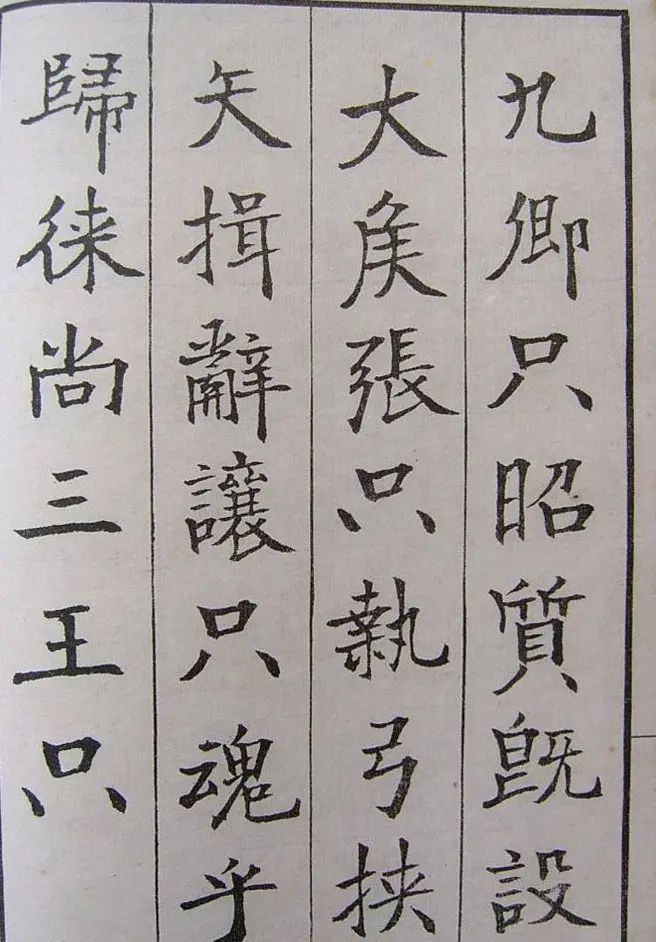 九卿只昭質既設
大侯張只執弓挾
矢揖辭讓只魂乎
歸徠尚三王只